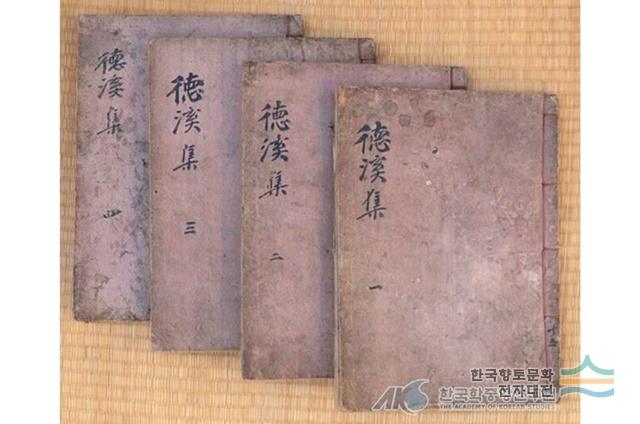 德溪集
四
德溪集
三
德溪集
二
德溪集
一
한국향토문화
전자대전
한국학중앙연구원
THE ACADEMY OF KOREAN STUDIES